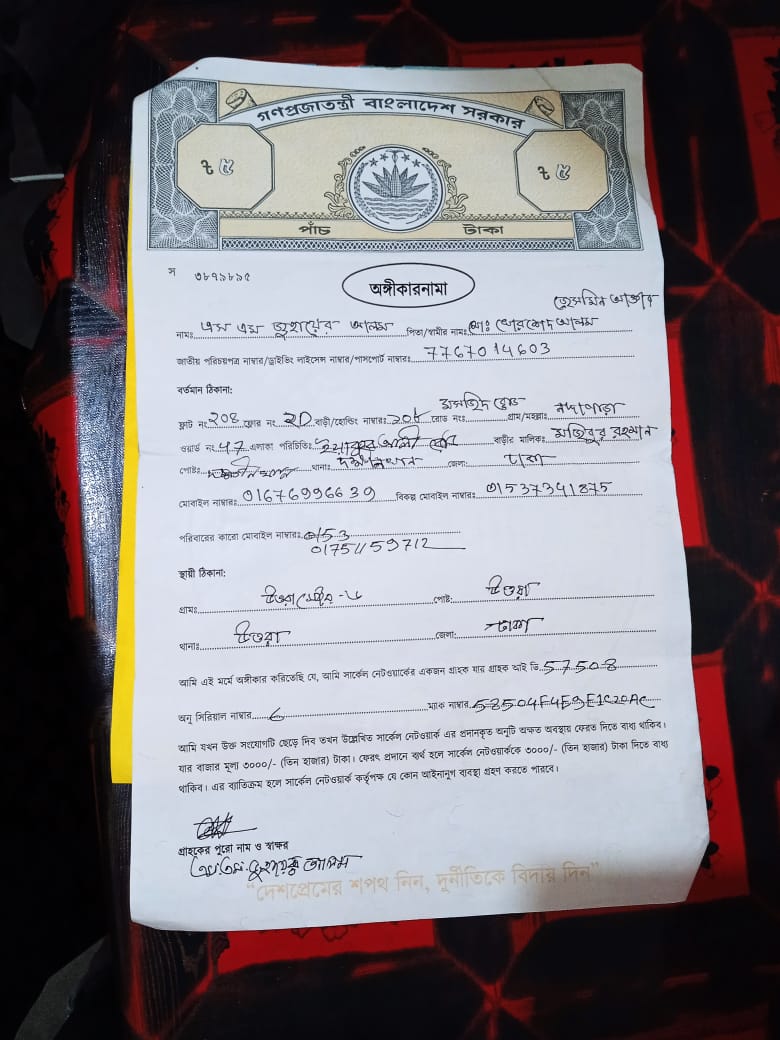 গণপ্রজাতন্ত্রী বাংলাদেশ সরকার
৳ ৫ ৳ ৫
পাঁচ টাকা
স ৩৮৭৯৮৯৫
অঙ্গীকারনামা
নামঃ এস এম জুহায়ের আলম পিতা/স্বামীর নামঃ মোঃ খোরশেদ আলম
জাতীয় পরিচয়পত্র নাম্বার/ড্রাইভিং লাইসেন্স নাম্বার/পাসপোর্ট নাম্বারঃ 7767014603
বর্তমান ঠিকানা:
মসজিদ রোড
ফ্লাট নং 208 ফ্লোর নং 2D বাড়ী/হোল্ডিং নাম্বারঃ 208 রোড নংঃ গ্রাম/মহল্লাঃ নদ্দাপাড়া
ওয়ার্ড নং 47 এলাকা পরিচিতিঃ বাড়ীর মালিকঃ মজিবুর রহমান
পোষ্টঃ থানাঃ দক্ষিণখান জেলা: ঢাকা
মোবাইল নাম্বারঃ 01676996639 বিকল্প মোবাইল নাম্বারঃ 01537341875
পরিবারের কারো মোবাইল নাম্বারঃ 0153
01751159712
স্থায়ী ঠিকানা:
গ্রামঃ পোষ্ট: উত্তরা
থানাঃ উত্তরা জেলা: ঢাকা
আমি এই মর্মে অঙ্গীকার করিতেছি যে, আমি সার্কেল নেটওয়ার্কের একজন গ্রাহক যার গ্রাহক আই ডি 57508
অনু সিরিয়াল নাম্বার 6 ম্যাক নাম্বার 58504F4F9E1C20AC
আমি যখন উক্ত সংযোগটি ছেড়ে দিব তখন উল্লেখিত সার্কেল নেটওয়ার্ক এর প্রদানকৃত অনুটি অক্ষত অবস্থায় ফেরত দিতে বাধ্য থাকিব।
যার বাজার মূল্য ৩০০০/- (তিন হাজার) টাকা। ফেরৎ প্রদানে ব্যর্থ হলে সার্কেল নেটওয়ার্ককে ৩০০০/- (তিন হাজার) টাকা দিতে বাধ্য
থাকিব। এর ব্যতিক্রম হলে সার্কেল নেটওয়ার্ক কর্তৃপক্ষ যে কোন আইনানুগ ব্যবস্থা গ্রহণ করতে পারবে।
গ্রাহকের পুরো নাম ও স্বাক্ষর
এস এম জুহায়ের আলম
"দেশপ্রেমের শপথ নিন, দুর্নীতিকে বিদায় দিন"